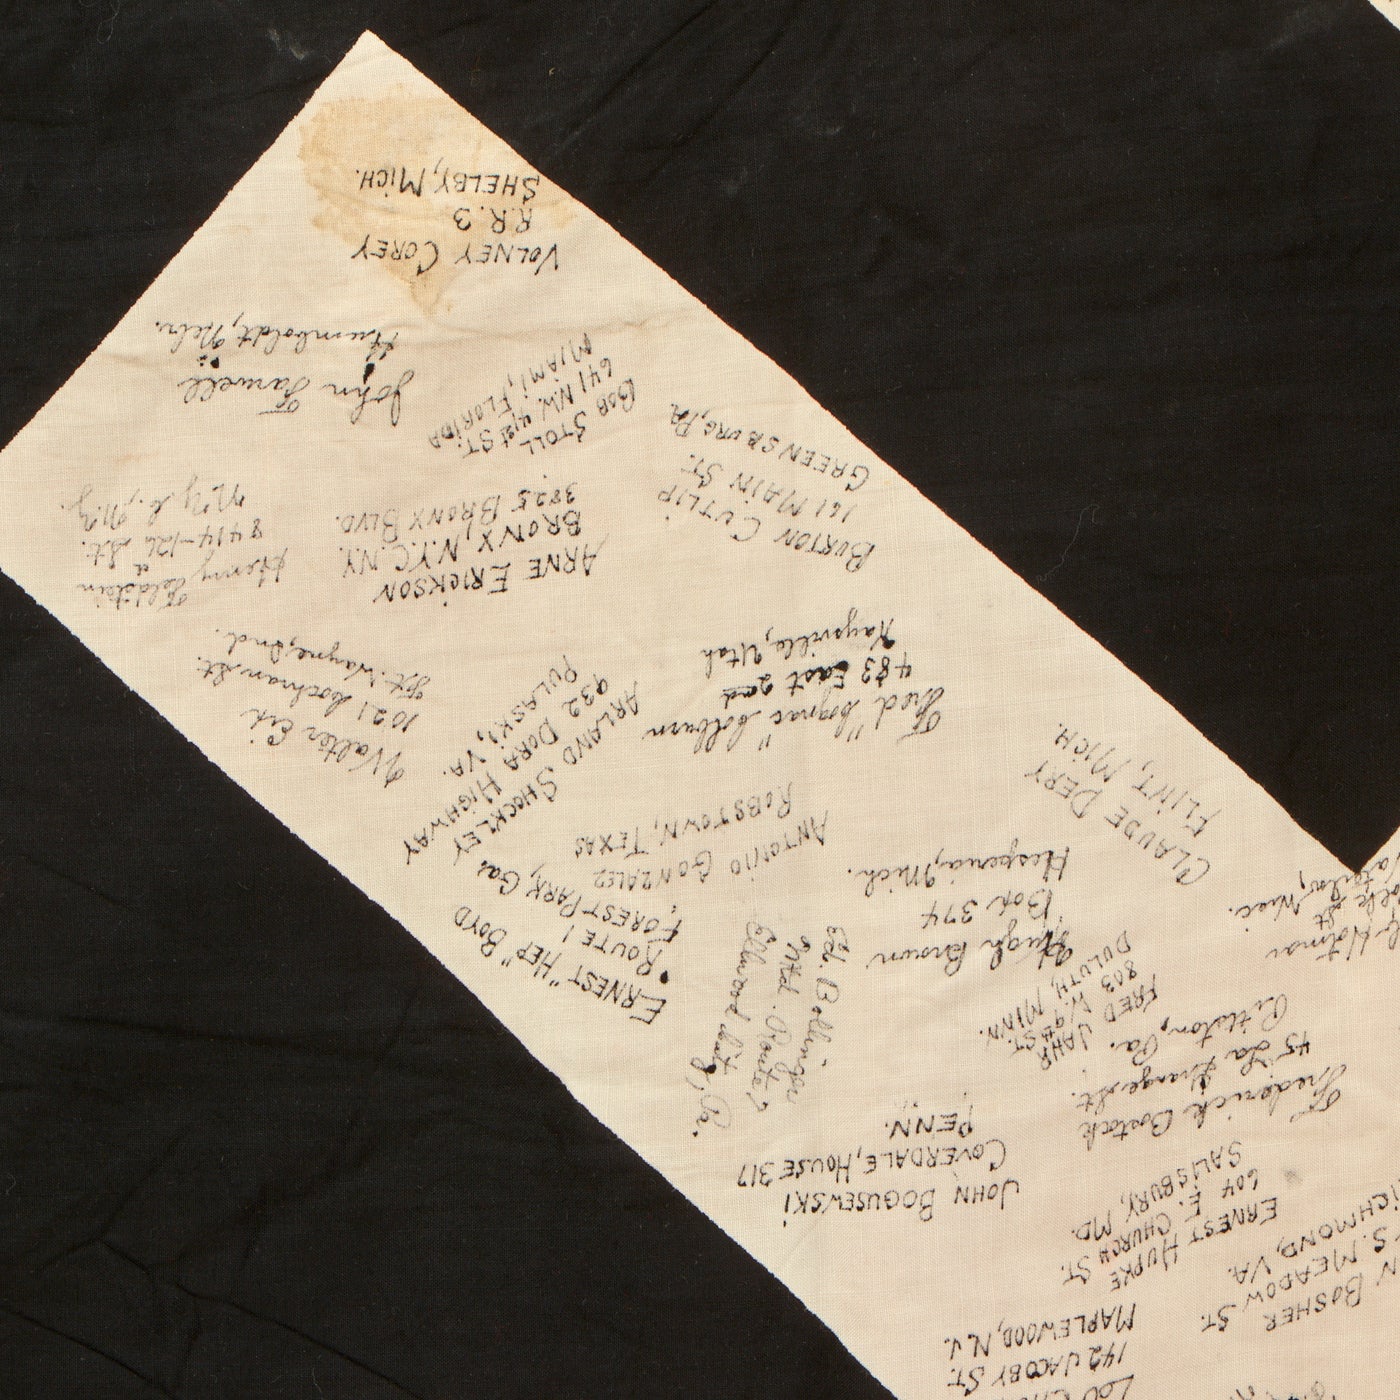 VOLNEY COREY
R.R. 3
SHELBY, MICH.
John Farwell
Humboldt, Nebr.
BOB STOLL
641 N.W. 41st ST.
MIAMI, FLORIDA
BURTON CUTLIP
161 MAIN ST.
GREENSBURG, PA
ARNE ERICKSON
BRONX, N.Y.C. N.Y.
3825 BRONX BLVD.
Henry Feldstein
8414-126 St.
N.Y.C., N.Y.
Walter
1021 Cochran St.
Ft. Wayne, Ind.
ARLAND SHOCKLEY
932 DORA HIGHWAY
PULASKI, VA.
Fred "Cognac" Colburn
483 East 2nd
Kaysville, Utah
CLAUDE DERY
FLINT, MICH.
ANTONIO GONZALEZ
ROBSTOWN, TEXAS
ERNEST "HEP" BOYD
ROUTE 1
FOREST PARK, Ga.
Hugh Brown
Box 374
Hesperia, Mich.
Ed. Bollinger
Route 2
Ellwood City, Pa.
FRED JAHR
803 W. 9th ST.
DULUTH, MINN.
Holmar
St
Wisc.
Frederick Bostock
45 La Grange St.
Pittston, Pa.
JOHN BOGUSEWSKI
COVERDALE, HOUSE 317
PENN.
ERNEST HUPKE
604 E. CHURCH ST.
SALISBURY, MD.
BOSHER
S. MEADOW ST.
RICHMOND, VA.
LOU
142 JACOBY ST.
MAPLEWOOD, N.J.